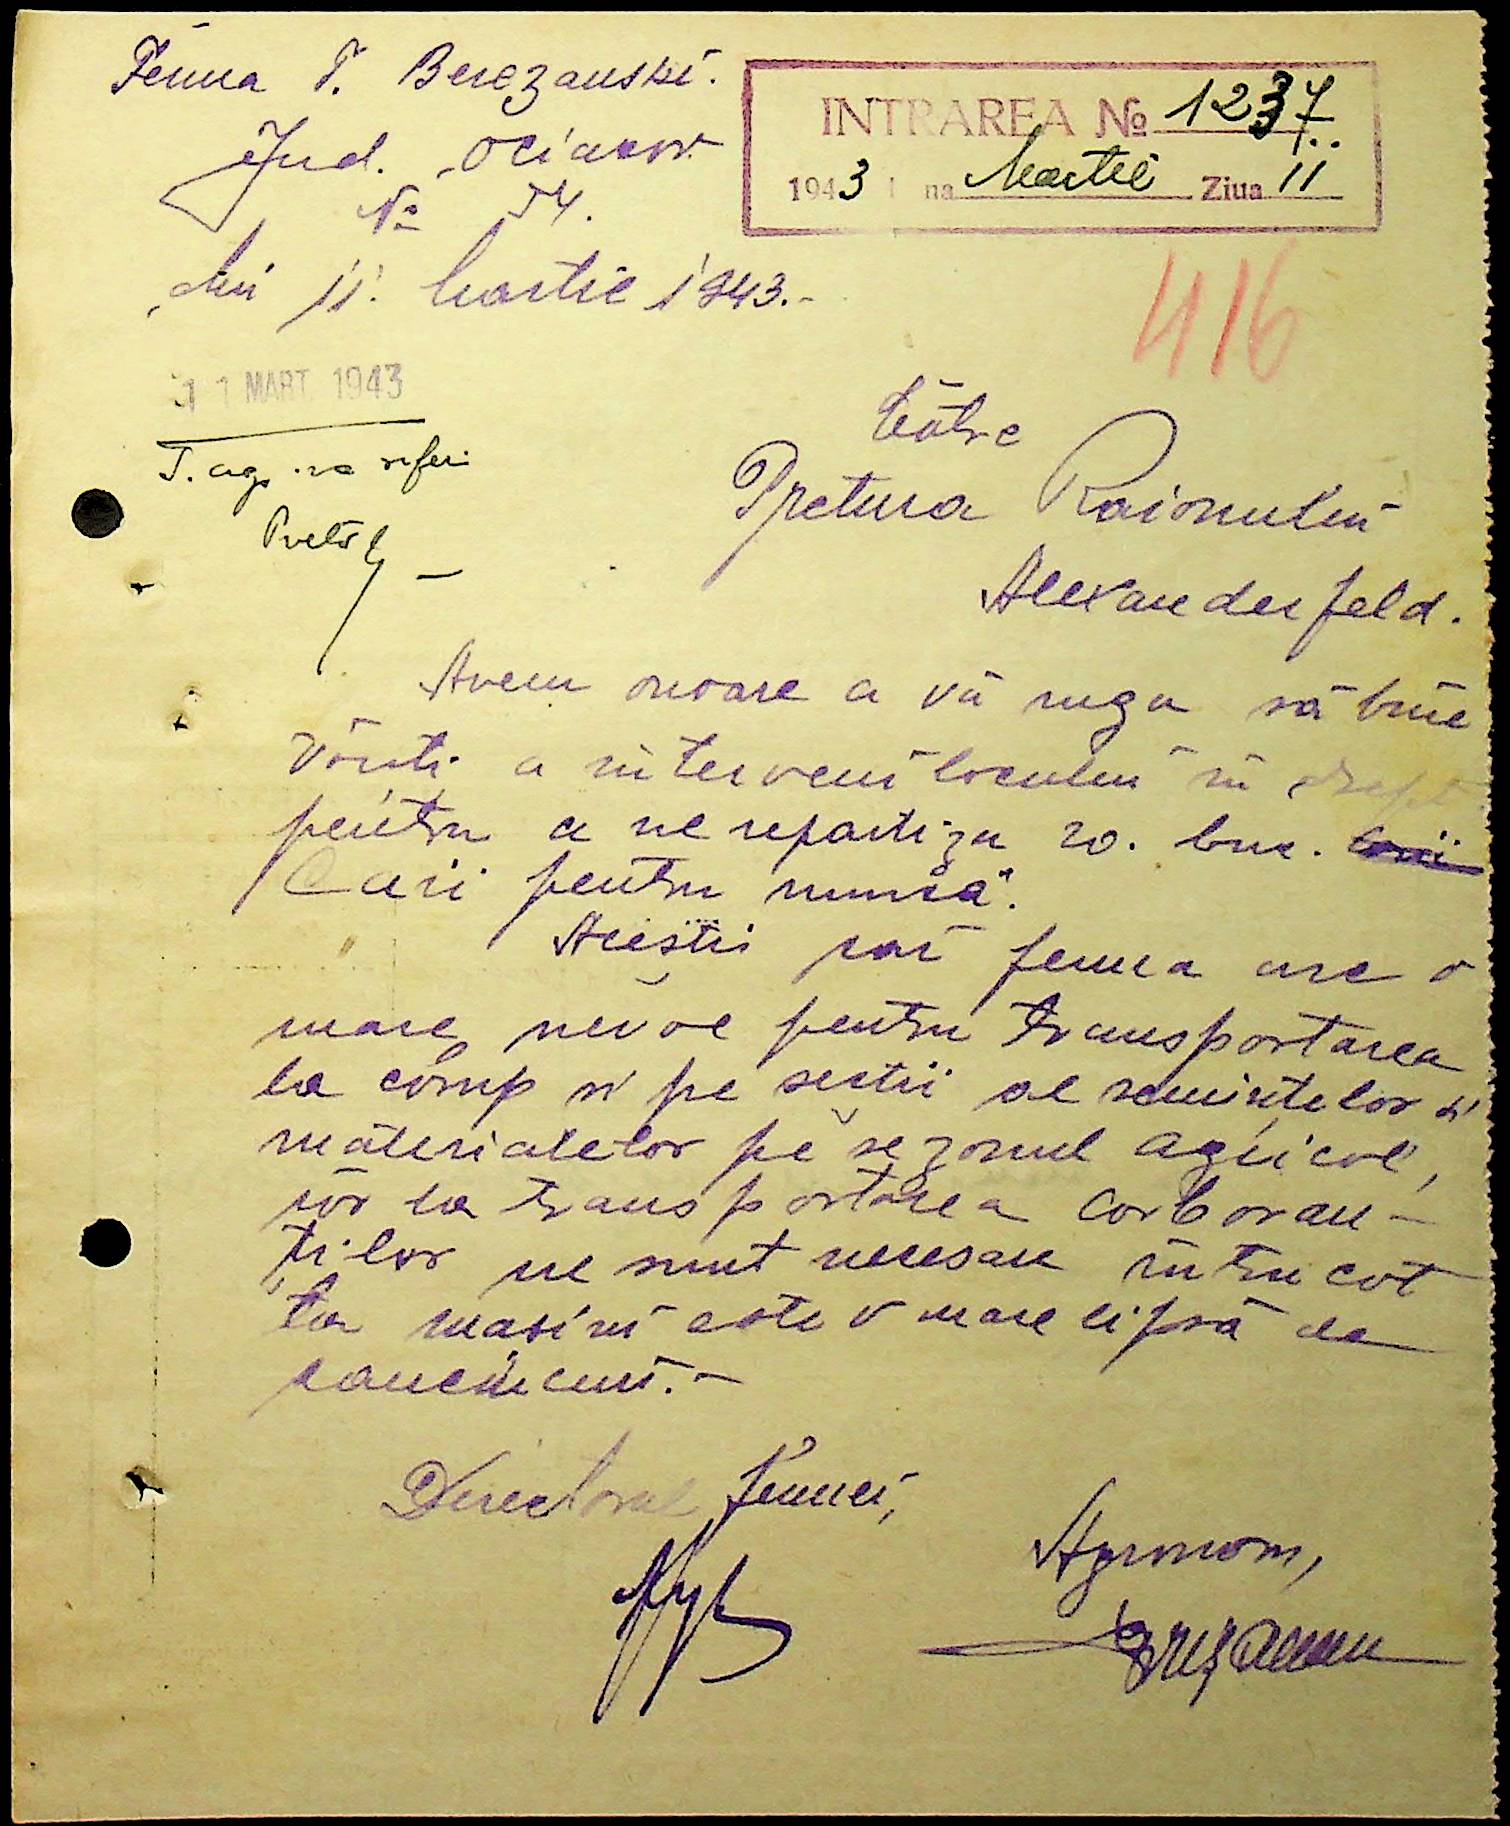 Ferma T. Berezanski.
Jud. Oceacov
INTRAREA No 1237
1943 na Martie Ziua 11
No 54.
din 11. Martie 1943.-
416
11 MART. 1943
T. agr. va referi
Pretor
Către
Pretura Raionului
Alexanderfeld.
Avem onoare a vă ruga să bine
voiti a interveni locului în drept
pentru a ne repartiza 20. buc.
Cari pentru muncă.
Acesti cai ferma are o
mare nevoe pentru transportarea
la cômp si pe sectii al semintelor si
materialelor pe sezonul agricol,
iar la transportarea carboran-
tilor ne sunt necesare întru cat
la masini este o mare lipsă de
caucincuri.-
Directorul fermei,
Agronom,